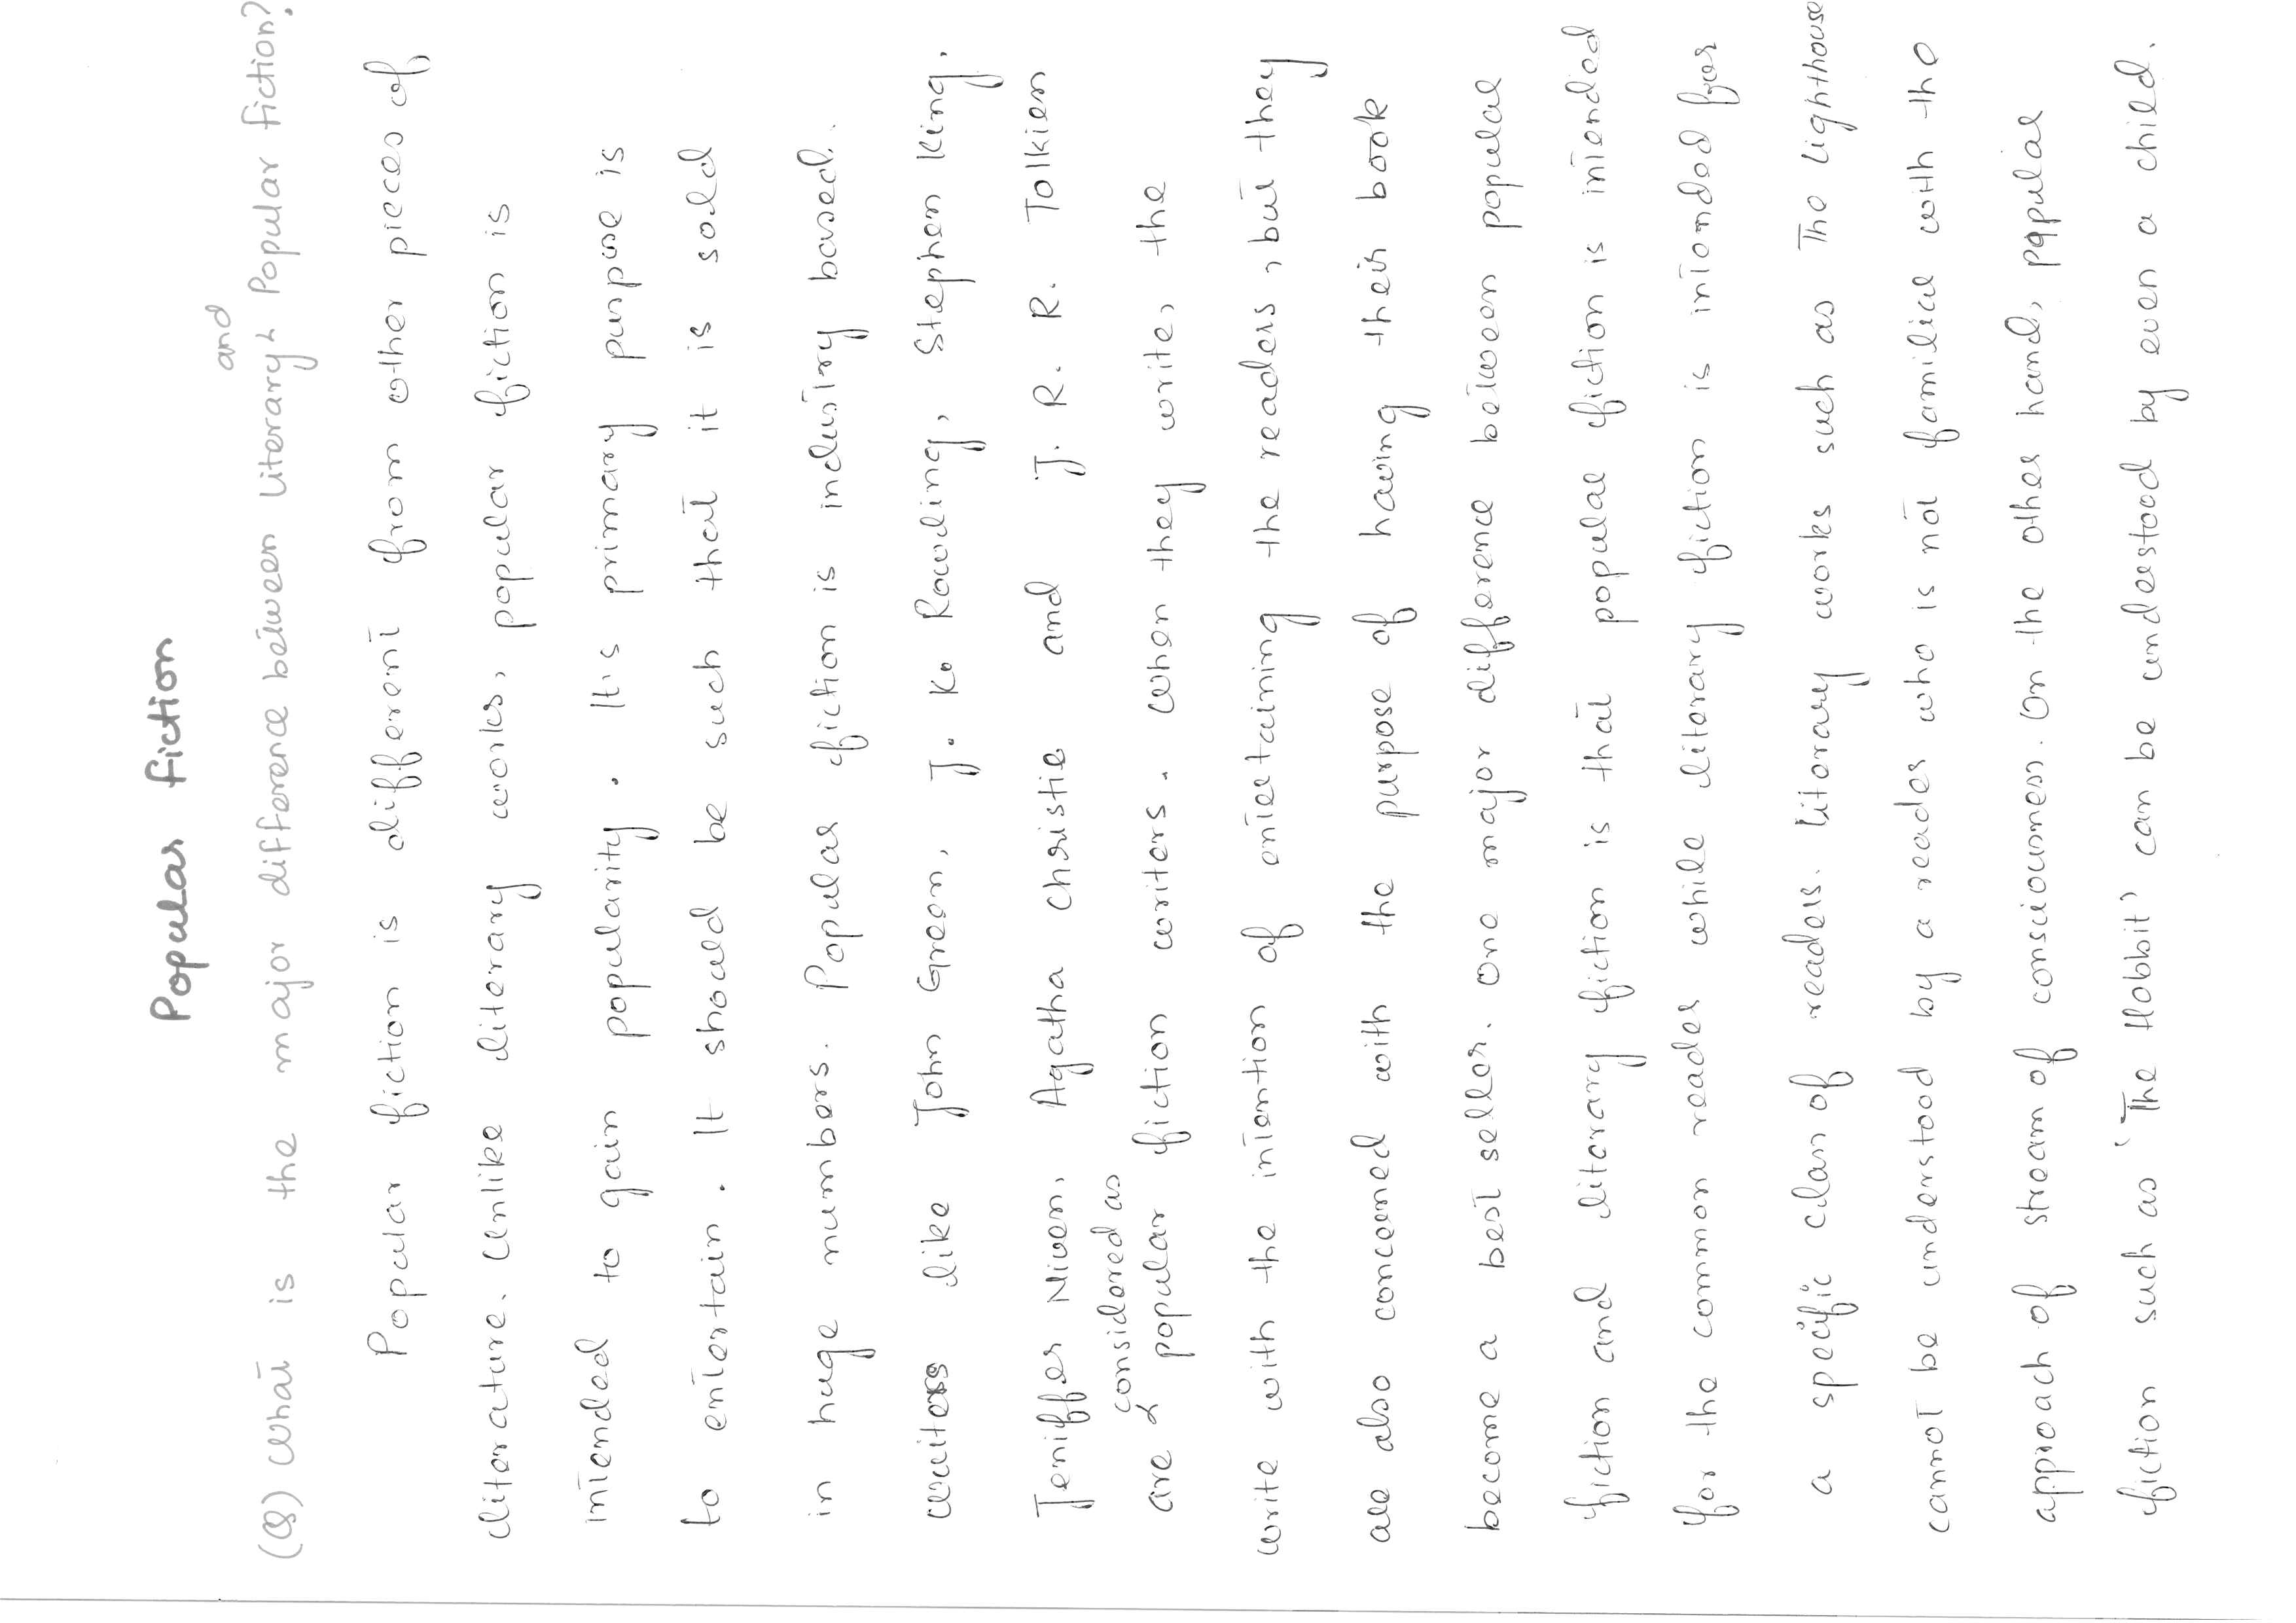 Popular fiction
and
(Q) What is the major difference between literary & Popular fiction?
Popular fiction is different from other pieces of
literature. Unlike literary works, popular fiction is
intended to gain popularity. It's primary purpose is
to entertain. It should be such that it is sold
in huge numbers. Popular fiction is industry based.
writers like John Green, J. K. Rowling, Stephen King,
Jeniffer Niven, Agatha Christie and J. R. R. Tolkien
considered as
are popular fiction writers. When they write, the
write with the intention of entertaining the readers, but they
are also concerned with the purpose of having their book
become a best seller. One major difference between popular
fiction and literary fiction is that popular fiction is intended
for the common reader while literary fiction is intended for
a specific class of readers. Literary works such as The Lighthouse
cannot be understood by a reader who is not familiar with the
approach of stream of consciousness. On the other hand, popular
fiction such as 'The Hobbit' can be understood by even a child.